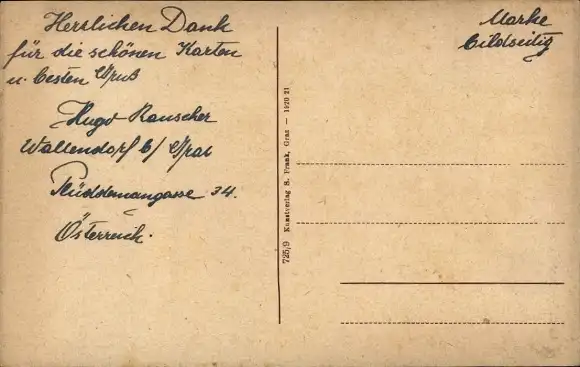 Herzlichen Dank
für die schönen Karten
u. besten Gruß
Hugo Rauscher
Waltendorf b/ Graz
Plüddemangasse 34.
Österreich.
Marke
bildseitig
725/9 Kunstverlag S. Frank, Graz — 1920 21